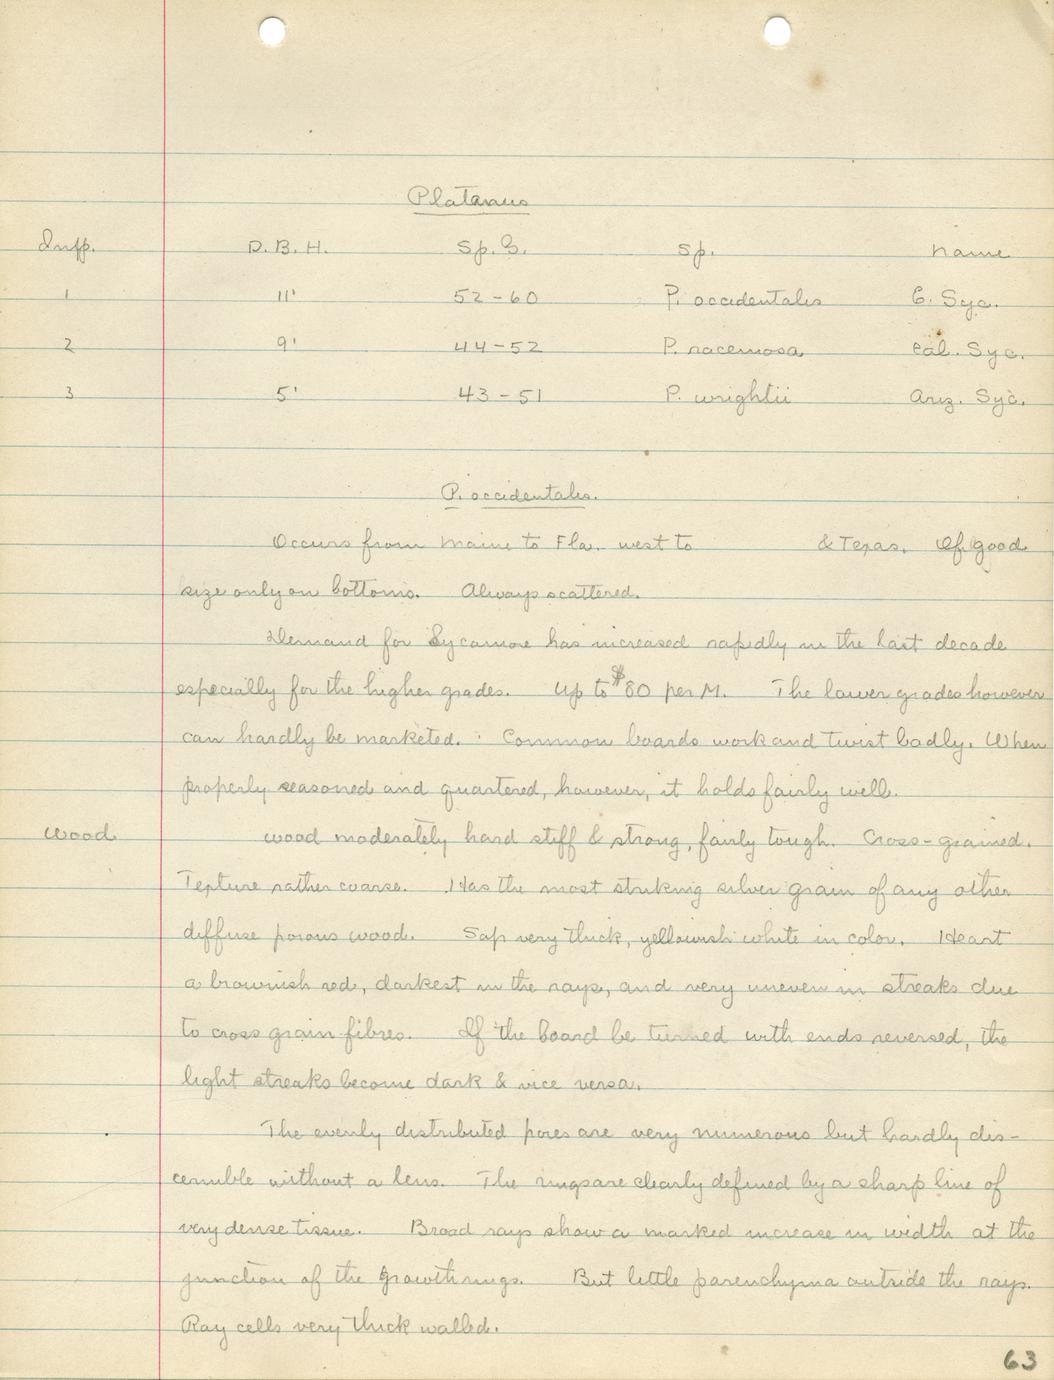 Platanus
Imp. D.B.H. Sp. G. Sp. name
1 11' 52-60 P. occidentalis E. Syc.
2 9' 44-52 P. racemosa Cal. Syc.
3 5' 43-51 P. wrightii Ariz. Syc.
P. occidentalis.
Occurs from Maine to Fla. west to & Texas. Of good
size only on bottoms. Always scattered.
Demand for Sycamore has increased rapidly in the last decade
especially for the higher grades. Up to $80 per M. The lower grades however
can hardly be marketed. Common boards work and twist badly. When
properly seasoned and quartered, however, it holds fairly well.
Wood wood moderately hard stiff & strong, fairly tough. Cross-grained.
Texture rather coarse. Has the most striking silver grain of any other
diffuse porous wood. Sap very thick, yellowish white in color. Heart
a brownish red, darkest in the rays, and very uneven in streaks due
to cross grain fibres. If the board be turned with ends reversed, the
light streaks become dark & vice versa.
The evenly distributed pores are very numerous but hardly dis-
cernible without a lens. The rings are clearly defined by a sharp line of
very dense tissue. Broad rays show a marked increase in width at the
junction of the growth rings. But little parenchyma outside the rays.
Ray cells very thick walled.
63